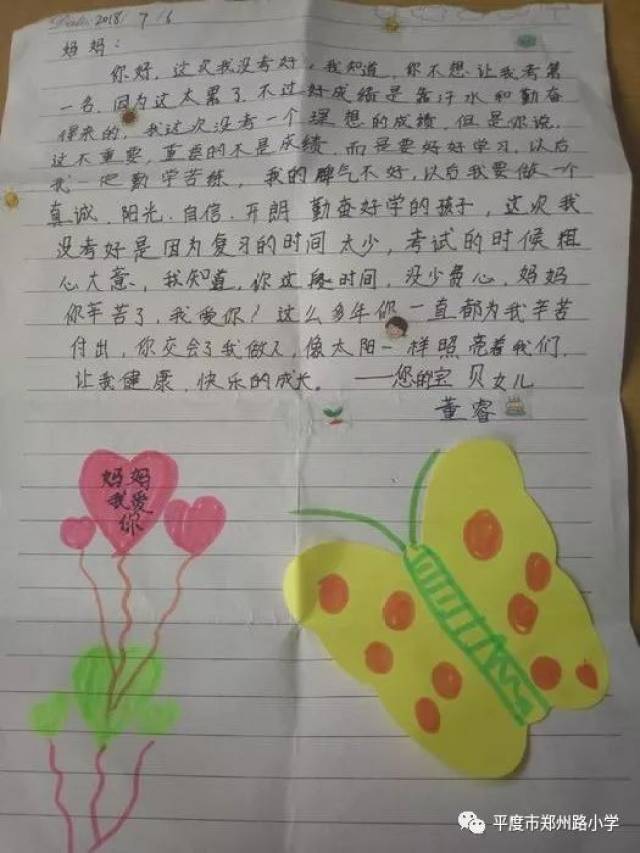 Date: 2018 7 / 6
妈妈：
你好，这次我没考好，我知道，你不想让我考第
一名，因为这太累了，不过好成绩是告汗水和勤奋
得来的，我这次没考一个理想的成绩，但是你说，
这不重要，重要的不是成绩，而是要好好学习，以后
我一定勤学苦练，我的脾气不好，以后我要做一个
真诚、阳光、自信、开朗勤奋好学的孩子，这次我
没考好是因为复习的时间太少，考试的时候粗
心大意，我知道，你这段时间，没少费心，妈妈
你辛苦了，我爱你！这么多年你一直都为我辛苦
付出，你交会了我做人，像太阳一样照亮着我们，
让我健康、快乐的成长。——您的宝贝女儿
董睿
妈妈
我爱
你
平度市郑州路小学